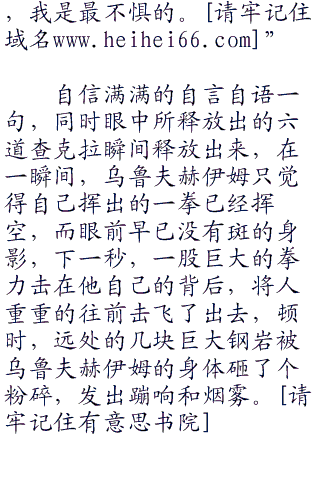 ，我是最不惧的。[请牢记住
域名www.heihei66.com]”
自信满满的自言自语一
句，同时眼中所释放出的六
道查克拉瞬间释放出来，在
一瞬间，乌鲁夫赫伊姆只觉
得自己挥出的一拳已经挥
空，而眼前早已没有斑的身
影，下一秒，一股巨大的拳
力击在他自己的背后，将人
重重的往前击飞了出去，顿
时，远处的几块巨大钢岩被
乌鲁夫赫伊姆的身体砸了个
粉碎，发出蹦响和烟雾。[请
牢记住有意思书院]